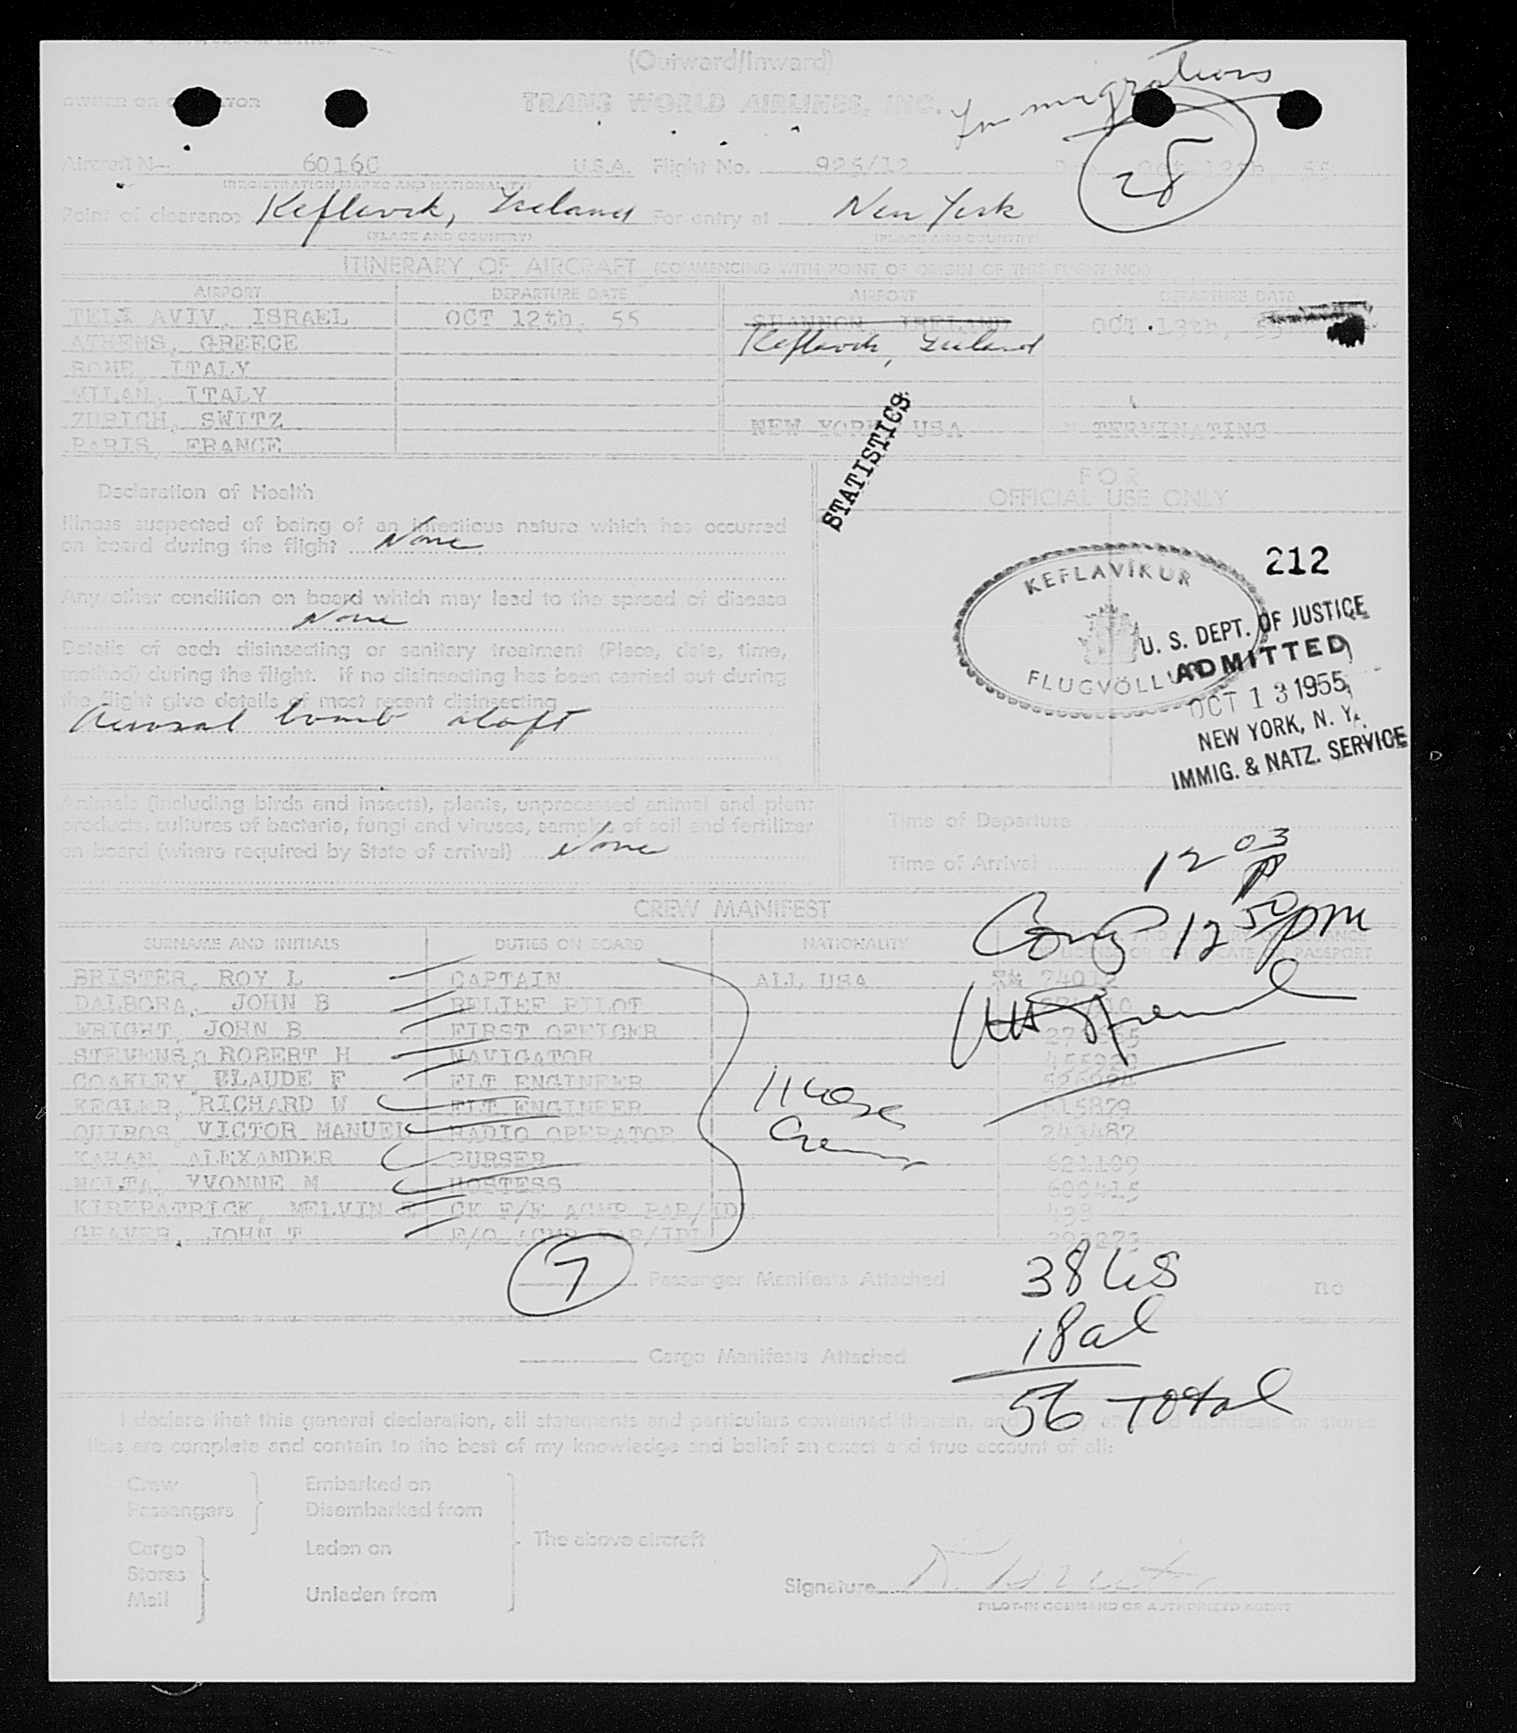 (Outward/Inward)
OWNER OR OPERATOR TRANS WORLD AIRLINES, INC.
Immigrations
28
Aircraft No. 6016C U.S.A. Flight No. 925/12 Oct 12th 55
(REGISTRATION MARKS AND NATIONALITY)
Point of clearance Keflavik, Iceland For entry at New York
(PLACE AND COUNTRY) (PLACE AND COUNTRY)
ITINERARY OF AIRCRAFT (COMMENCING WITH POINT OF ORIGIN OF THIS FLIGHT NO.)
AIRPORT DEPARTURE DATE AIRPORT DEPARTURE DATE
AVIV, ISRAEL OCT 12th, 55 SHANNON, IRELAND OCT 13th, 55
ATHENS, GREECE Keflavik, Iceland
ROME, ITALY
MILAN, ITALY
ZURICH, SWITZ NEW YORK, USA TERMINATING
PARIS, FRANCE
STATISTICS
Declaration of Health
FOR
OFFICIAL USE ONLY
Illness suspected of being of an infectious nature which has occurred
on board during the flight None
Any other condition on board which may lead to the spread of disease
None
Details of each disinsecting or sanitary treatment (Place, date, time,
method) during the flight. If no disinsecting has been carried out during
the flight give details of most recent disinsecting
Aerosal bomb aloft
KEFLAVÍKUR
FLUGVÖLLUR
212
U. S. DEPT. OF JUSTICE
ADMITTED
OCT 13 1955
NEW YORK, N. Y.
IMMIG. & NATZ. SERVICE
Animals (including birds and insects), plants, unprocessed animal and plant
products, cultures of bacteria, fungi and viruses, samples of soil and fertilizer
on board (where required by State of arrival) None
Time of Departure
Time of Arrival 12 03 P
12 50 pm
CREW MANIFEST
SURNAME AND INITIALS DUTIES ON BOARD NATIONALITY
BRISTER, ROY L CAPTAIN ALL USA
DALBORA, JOHN B RELIEF PILOT
WRIGHT, JOHN B FIRST OFFICER
STEVENS, ROBERT H NAVIGATOR 455229
COAKLEY, CLAUDE F FLT ENGINEER
KEGLER, RICHARD W FLT ENGINEER 515829
QUIROS, VICTOR MANUEL RADIO OPERATOR 243487
KAHAN, ALEXANDER PURSER 621109
MOLTA, YVONNE M HOSTESS 600415
KIRKPATRICK, MELVIN CK F/E ACMP PAR/IDL
GRAVES, JOHN T F/O ACMP PAR/IDL
11 USC
Crew
7 Passenger Manifests Attached 38 US no
18 al
Cargo Manifests Attached
56 Total
I declare that this general declaration, all statements and particulars contained therein, and manifests or stores
lists are complete and contain to the best of my knowledge and belief an exact and true account of all:
Crew Embarked on
Passengers Disembarked from
The above aircraft
Cargo Laden on
Stores
Mail Unladen from
Signature
PILOT-IN COMMAND OR AUTHORIZED AGENT